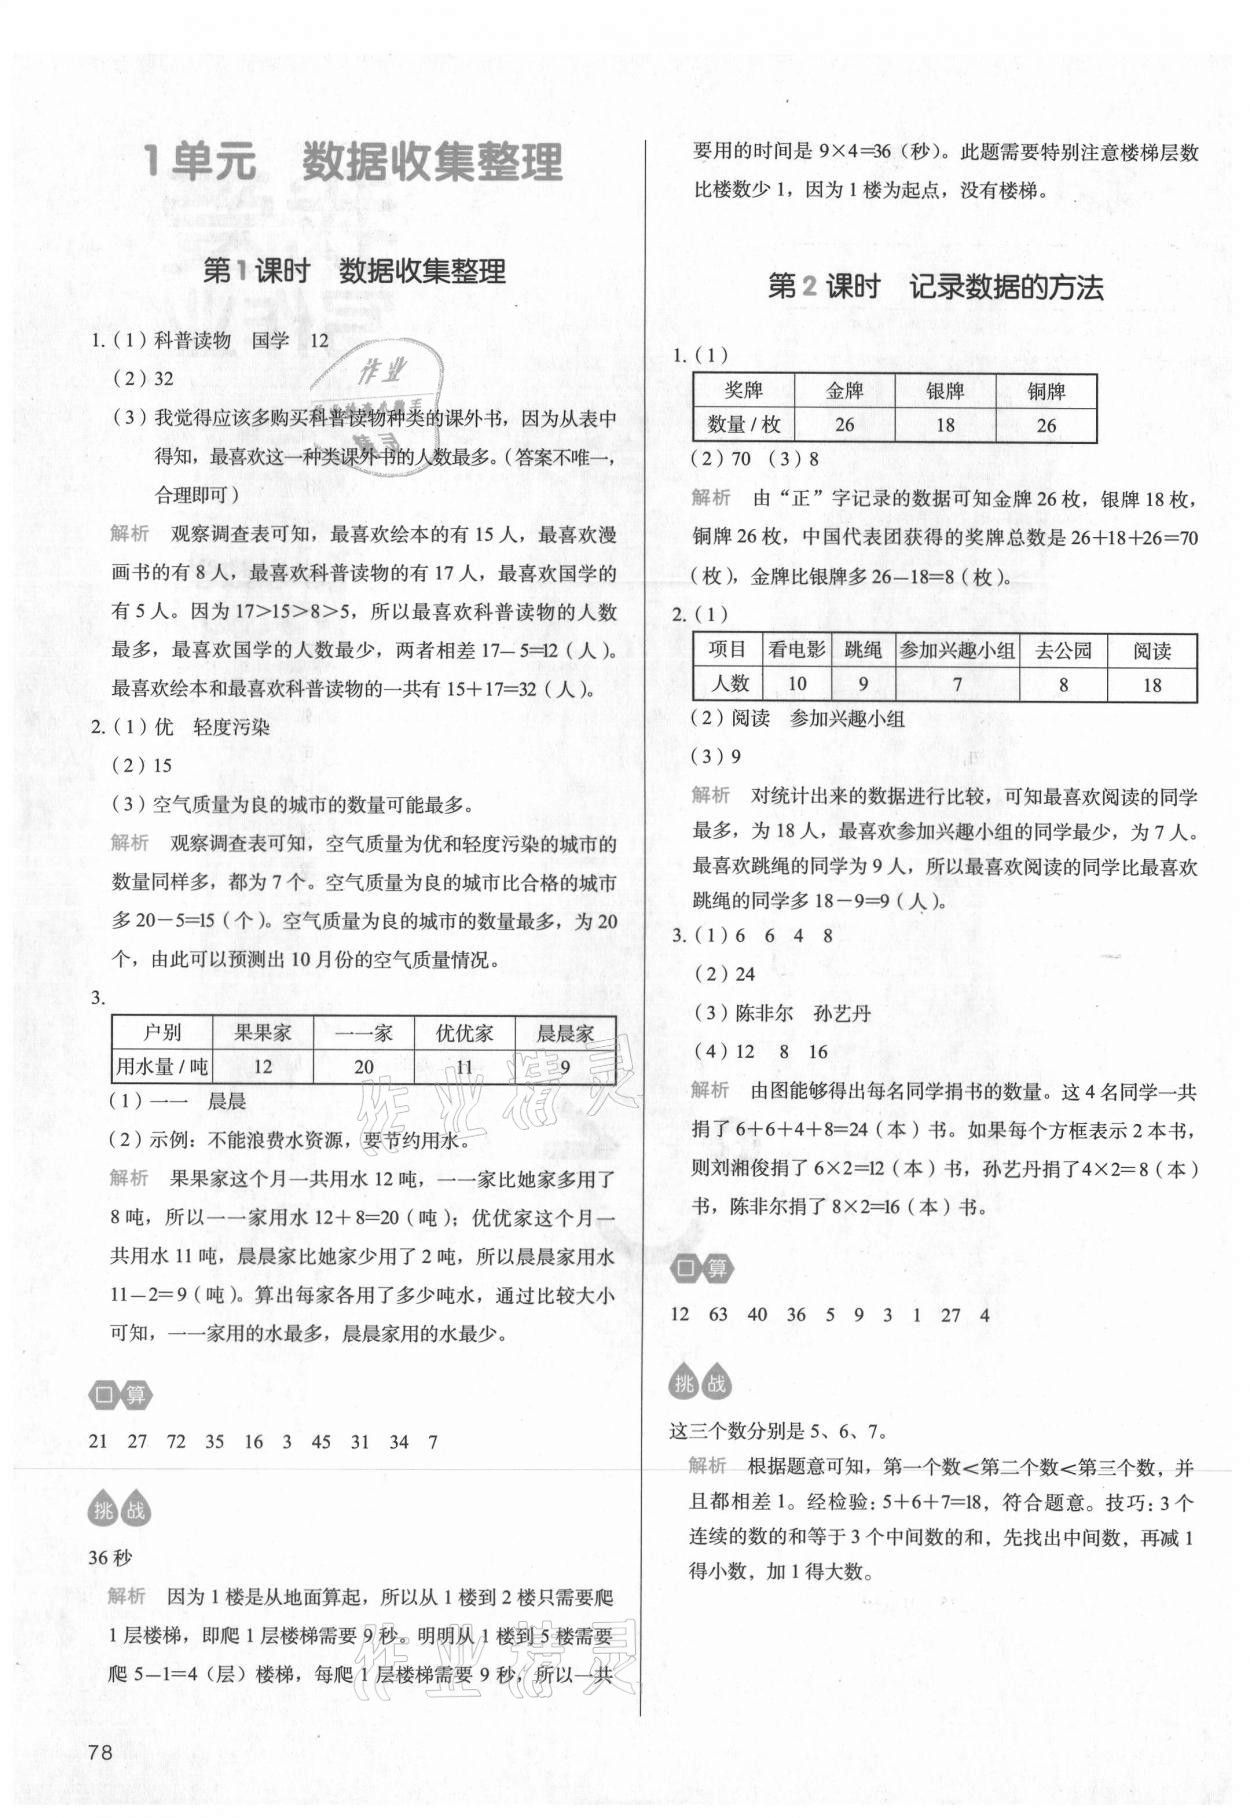 1单元 数据收集整理
第1课时 数据收集整理
1.(1)科普读物 国学 12
(2)32
(3)我觉得应该多购买科普读物种类的课外书，因为从表中
得知，最喜欢这一种类课外书的人数最多。(答案不唯一，
合理即可)
解析 观察调查表可知，最喜欢绘本的有15人，最喜欢漫
画书的有8人，最喜欢科普读物的有17人，最喜欢国学的
有5人。因为17>15>8>5，所以最喜欢科普读物的人数
最多，最喜欢国学的人数最少，两者相差17-5=12(人)。
最喜欢绘本和最喜欢科普读物的一共有15+17=32(人)。
2.(1)优 轻度污染
(2)15
(3)空气质量为良的城市的数量可能最多。
解析 观察调查表可知，空气质量为优和轻度污染的城市的
数量同样多，都为7个。空气质量为良的城市比合格的城市
多20-5=15(个)。空气质量为良的城市的数量最多，为20
个，由此可以预测出10月份的空气质量情况。
3.
户别 果果家 一一家 优优家 晨晨家
用水量/吨 12 20 11 9
(1)一一 晨晨
(2)示例：不能浪费水资源，要节约用水。
解析 果果家这个月一共用水12吨，一一家比她家多用了
8吨，所以一一家用水12+8=20(吨)；优优家这个月一
共用水11吨，晨晨家比她家少用了2吨，所以晨晨家用水
11-2=9(吨)。算出每家各用了多少吨水，通过比较大小
可知，一一家用的水最多，晨晨家用的水最少。
口算
21 27 72 35 16 3 45 31 34 7
挑战
36秒
解析 因为1楼是从地面算起，所以从1楼到2楼只需要爬
1层楼梯，即爬1层楼梯需要9秒。明明从1楼到5楼需要
爬5-1=4(层)楼梯，每爬1层楼梯需要9秒，所以一共
78
要用的时间是9×4=36(秒)。此题需要特别注意楼梯层数
比楼数少1，因为1楼为起点，没有楼梯。
第2课时 记录数据的方法
1.(1)
奖牌 金牌 银牌 铜牌
数量/枚 26 18 26
(2)70 (3)8
解析 由“正”字记录的数据可知金牌26枚，银牌18枚，
铜牌26枚，中国代表团获得的奖牌总数是26+18+26=70
(枚)，金牌比银牌多26-18=8(枚)。
2.(1)
项目 看电影 跳绳 参加兴趣小组 去公园 阅读
人数 10 9 7 8 18
(2)阅读 参加兴趣小组
(3)9
解析 对统计出来的数据进行比较，可知最喜欢阅读的同学
最多，为18人，最喜欢参加兴趣小组的同学最少，为7人。
最喜欢跳绳的同学为9人，所以最喜欢阅读的同学比最喜欢
跳绳的同学多18-9=9(人)。
3.(1)6 6 4 8
(2)24
(3)陈非尔 孙艺丹
(4)12 8 16
解析 由图能够得出每名同学捐书的数量。这4名同学一共
捐了6+6+4+8=24(本)书。如果每个方框表示2本书，
则刘湘俊捐了6×2=12(本)书，孙艺丹捐了4×2=8(本)
书，陈非尔捐了8×2=16(本)书。
口算
12 63 40 36 5 9 3 1 27 4
挑战
这三个数分别是5、6、7。
解析 根据题意可知，第一个数<第二个数<第三个数，并
且都相差1。经检验：5+6+7=18，符合题意。技巧：3个
连续的数的和等于3个中间数的和，先找出中间数，再减1
得小数，加1得大数。
作业
作业精灵
作业精灵